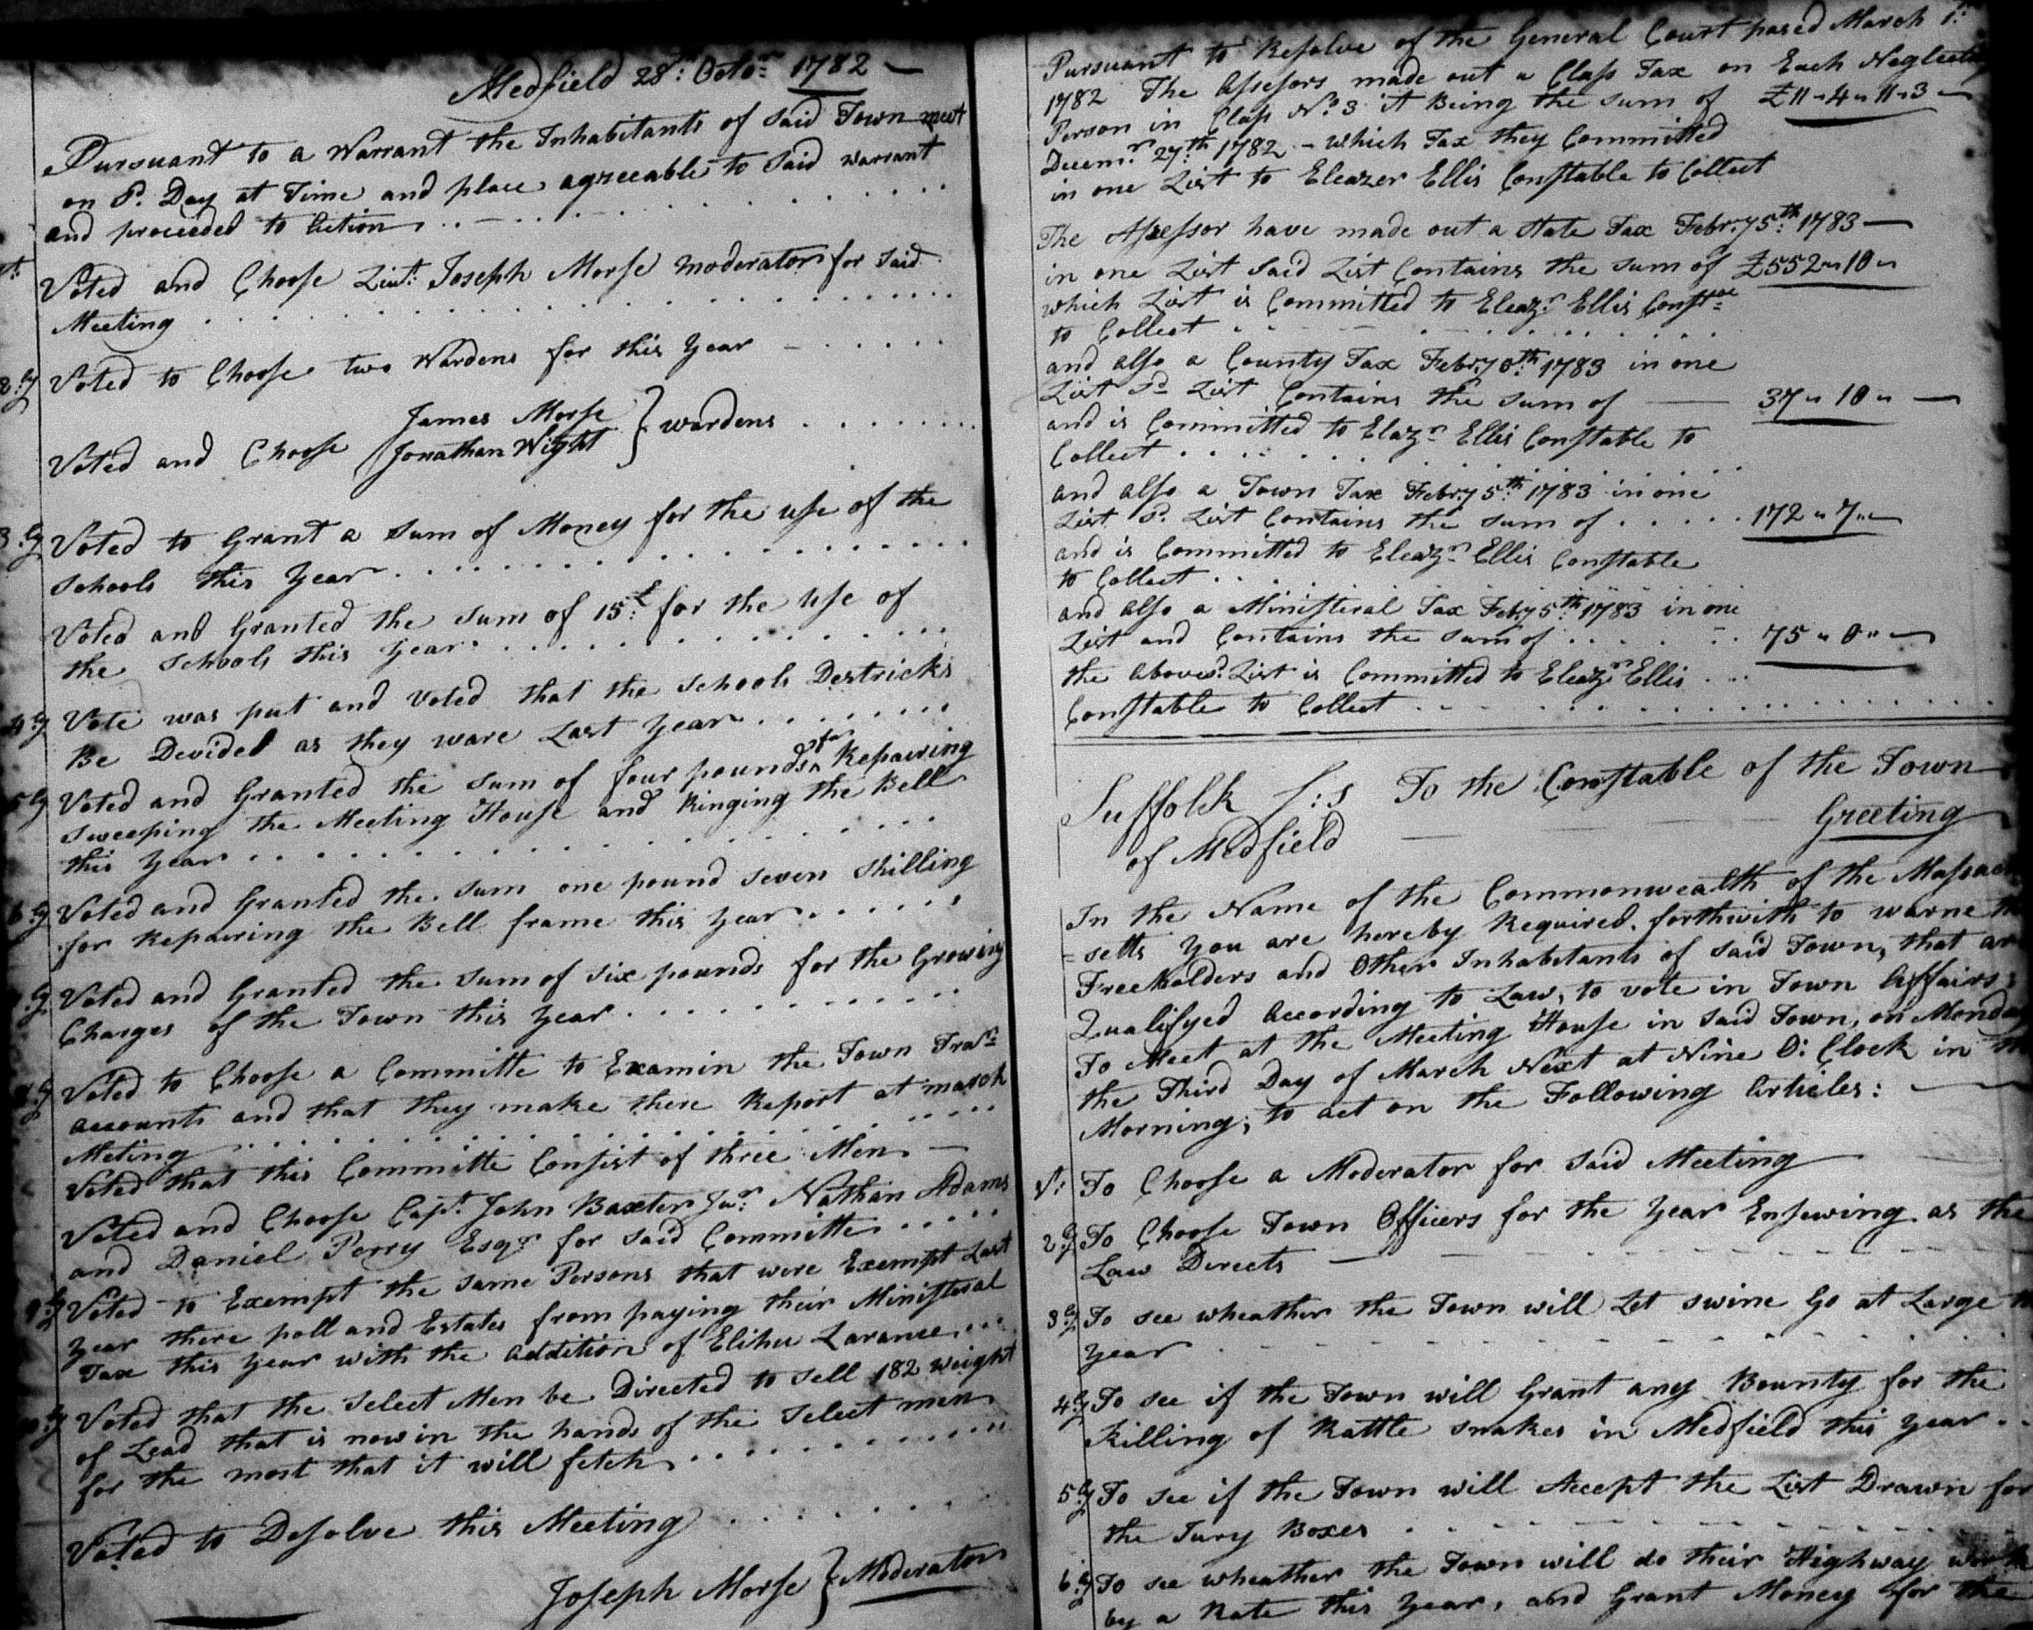 Medfield 28th: Octor: 1782 —
Pursuant to a Warrant the Inhabitants of Said Town meet
on Sd. Day at Time and place agreeable to Said warrant
and proceeded to Action
1st: Voted and Choose Liut: Joseph Morse moderator for Said
Meeting
2:ly Voted to Choose two Wardens for this Year
Voted and Choose James Morse
Jonathan Wight } wardens
3:ly Voted to Grant a Sum of Money for the use of the
Schools this Year
Voted and Granted the Sum of 15:£ for the use of
the Schools this Year
4:ly Vote was put and Voted that the Schools Destricks
Be Devided as they ware Last Year
5:ly Voted and Granted the Sum of four pounds ^for Repairing
Sweeping the Meeting House and Ringing the Bell
this Year
6:ly Voted and Granted the Sum one pound Seven Shilling
for Repairing the Bell frame this Year
7:ly Voted and Granted the Sum of Six pounds for the Growing
Charges of the Town this Year
8:ly Voted to Choose a Committe to Examin the Town Trasr
accounts and that they make there Report at march
Meting
Voted that this Committe Consist of three Men —
Voted and Choose Capt. John Baxter Jur: Nathan Adams
and Daniel Perry Esqr for Said Committe
9:ly Voted to Exempt the Same Persons that were Exempt Last
Year there poll and Estates from paying their Ministeral
Tax this Year with the addition of Elihu Larance
10:ly Voted that the Select Men be Directed to Sell 182 weight
of Lead that is now in the hands of the Select men
for the most that it will fetch
Voted to Desolve this Meeting
Joseph Morse } Moderator
Pursuant to Resolve of the General Court pased March 1:
1782 The Assesors made out a Class Tax on Each Neglecting
Person in Class No. 3 it Being the Sum of £11-4-11-3
Decemr. 27th: 1782 - which Tax they Committed
in one List to Eleazer Ellis Constable to Collect
The Assessor have made out a State Tax Febry 5th: 1783 —
in one List Said List Contains the Sum of £552-10-
which List is Committed to Eleazr Ellis Constae
to Collect
and also a County Tax Febry 6th: 1783 in one
List Sd List Contains the Sum of — 37 " 10 " —
and is Committed to Elazr Ellis Constable to
Collect
and also a Town Tax Febry 5th: 1783 in one
List Sd. List Contains the Sum of 172 " 7 "
and is Committed to Eleazr Ellis Constable
to Collect
and also a Ministeral Tax Feby 5th 1783 in one
List and Contains the Sum of 75 " 0 " —
the abovesd: List is Committed to Eleazr Ellis
Constable to Collect
Suffolk S:s To the Constable of the Town
of Medfield — Greeting
In the Name of the Commonwealth of the Massach
=setts You are hereby Required forthwith to warne the
Freeholders and Other Inhabitants of Said Town, that are
Qualifyed According to Law, to vote in Town Affairs:
To Meet at the Meeting House in Said Town, on Monday
the Third Day of March Next at Nine O: Clock in the
Morning; to act on the Following Articles: —
1: To Choose a Moderator for Said Meeting
2:ly To Choose Town Officers for the Year Ensewing as the
Law Directs —
3:ly To see wheather the Town will Let Swine Go at Large
Year
4:ly To see if the Town will Grant any Bounty for the
Killing of Rattle Snakes in Medfield this Year
5:ly To see if the Town will Accept the List Drawn for
the Jury Boxes
6:ly To see wheather the Town will do their Highway work
by a Rate this Year, and Grant Money for the